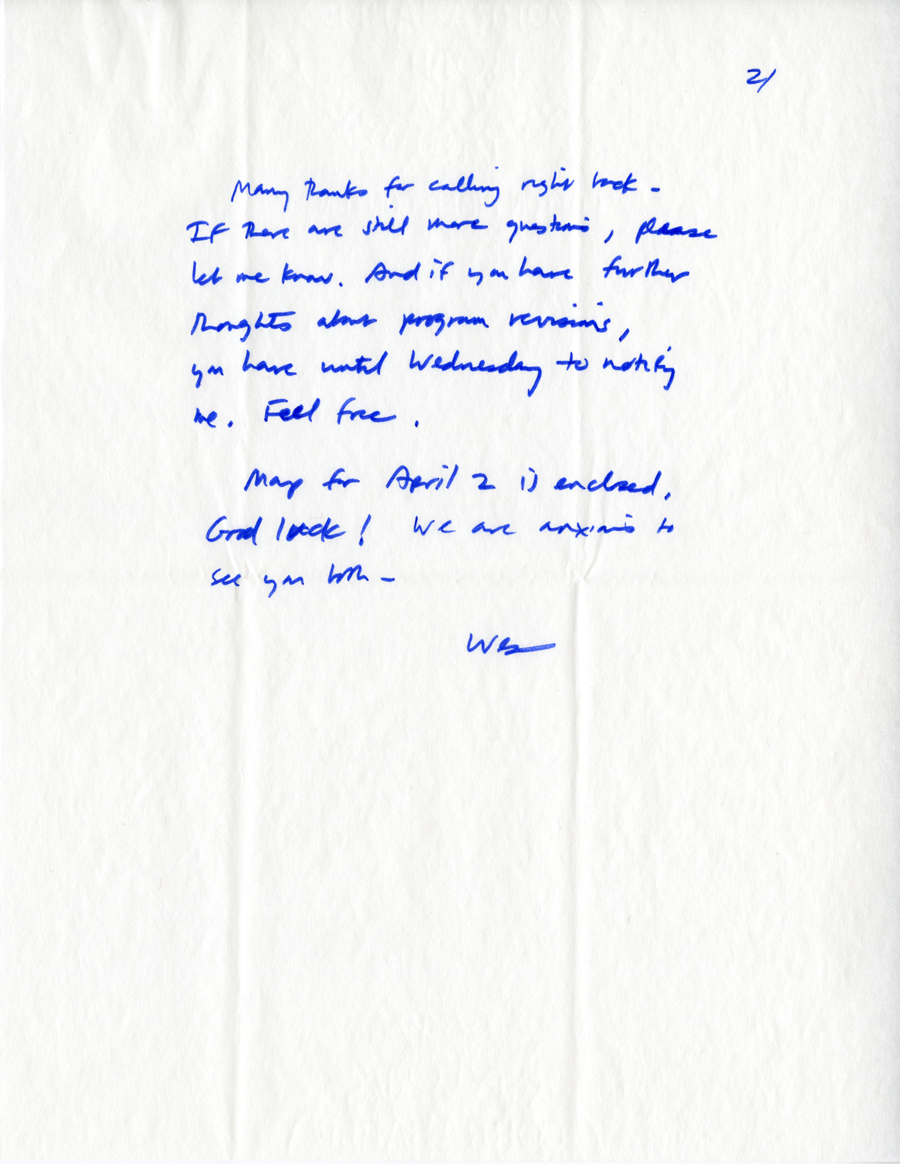 2/
Many thanks for calling right back -
If there are still more questions, please
let me know. And if you have further
thoughts about program revisions,
you have until Wednesday to notify
me. Feel free.
Map for April 2 is enclosed.
Good luck! We are anxious to
see you both -
Wes